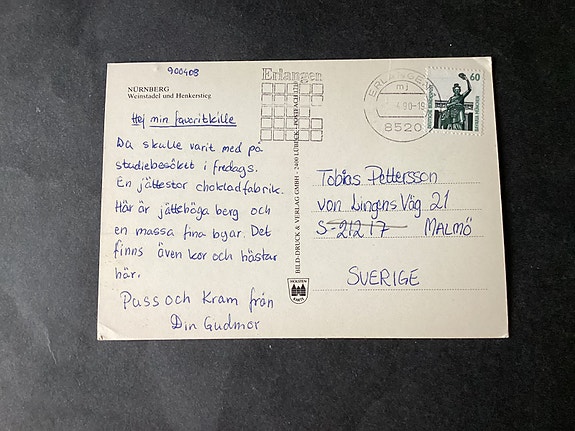 900408
NÜRNBERG
Weinstadel und Henkerstieg
Hej min favoritkille
Du skulle varit med på
studiebesöket i fredags.
En jättestor chokladfabrik.
Här är jättehöga berg och
en massa fina byar. Det
finns även kor och hästar
här.
Puss och Kram från
Din Gudmor
BILD-DRUCK & VERLAG GMBH · 2400 LÜBECK · POSTFACH
HOLSTEN
KARTE
Erlangen
ERLANGEN
mj
4.90-19
8520
60
DEUTSCHE BUNDESPOST
BAVARIA MÜNCHEN
Tobias Pettersson
von Lingens Väg 21
S-212 17 MALMÖ
SVERIGE